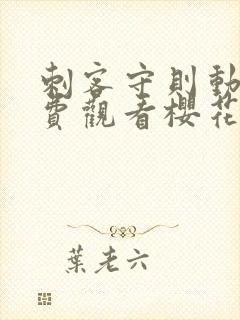 刺客守則動
費觀看櫻花
葉老六